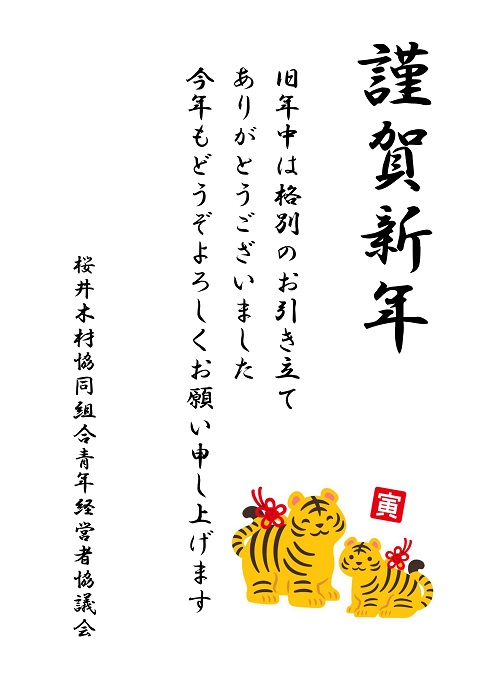 謹賀新年
旧年中は格別のお引き立て
ありがとうございました
今年もどうぞよろしくお願い申し上げます
桜井木材協同組合青年経営者協議会
寅